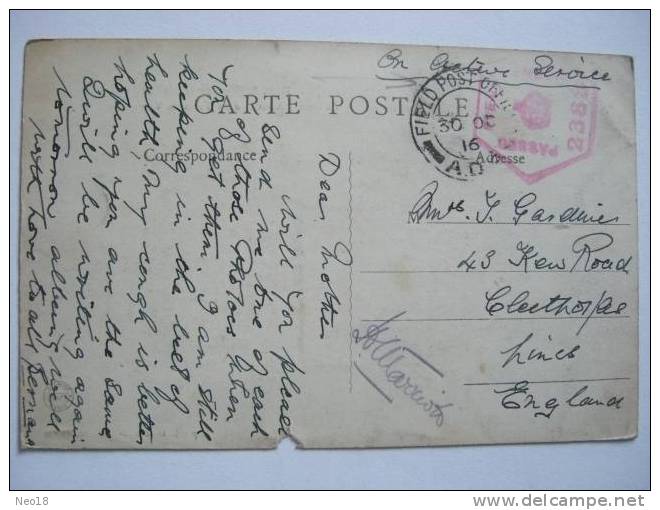 On Active Service
CARTE POSTALE
Correspondance
Adresse
FIELD POST OFFICE
30 OC
16
A.D
PASSED
238
Mrs. T. Gardiner
43 Kew Road
Cleethorpes
Lincs
England
Dear Mother
Will you please
send me one of each
of those Photos when
you get them. I am still
keeping in the best of
health, my cough is better,
hoping you are the same
I will be writing again
tomorrow
with love to all
Neo18
delcampe.net